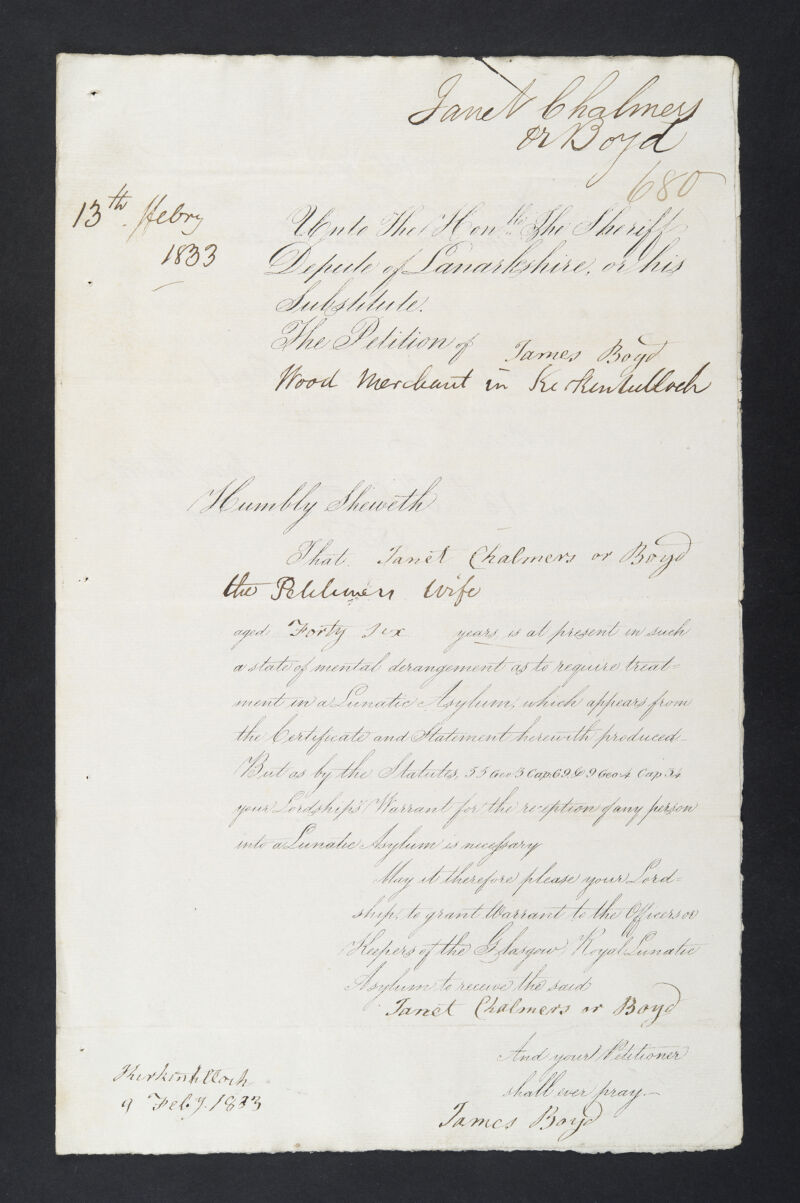 Janet Chalmers
or Boyd
680
13th. Febry
1833
Unto The Honble. The Sheriff
Depute of Lanarkshire, or his
Substitute.
The Petition of James Boyd
Wood Merchant in Kirkintulloch
Humbly Sheweth
That Janet Chalmers or Boyd
the Petitioners Wife
aged Forty Six years, is at present in such
a state of mental derangement as to require treat=
ment in a Lunatic Asylum, which appears from
the Certificate and Statement herewith produced
But as by the Statutes, 55 Geo 3 Cap. 69 & 9 Geo 4 Cap 34
your Lordships' Warrant for the reception of any person
into a Lunatic Asylum is necessary
May it therefore please your Lord=
ship, to grant Warrant to the Officers or
Keepers of the Glasgow Royal Lunatic
Asylum to receive the said
Janet Chalmers or Boyd
And your Petitioner
shall ever pray.—
James Boyd
Kirkintilloch
9 Feby. 1833